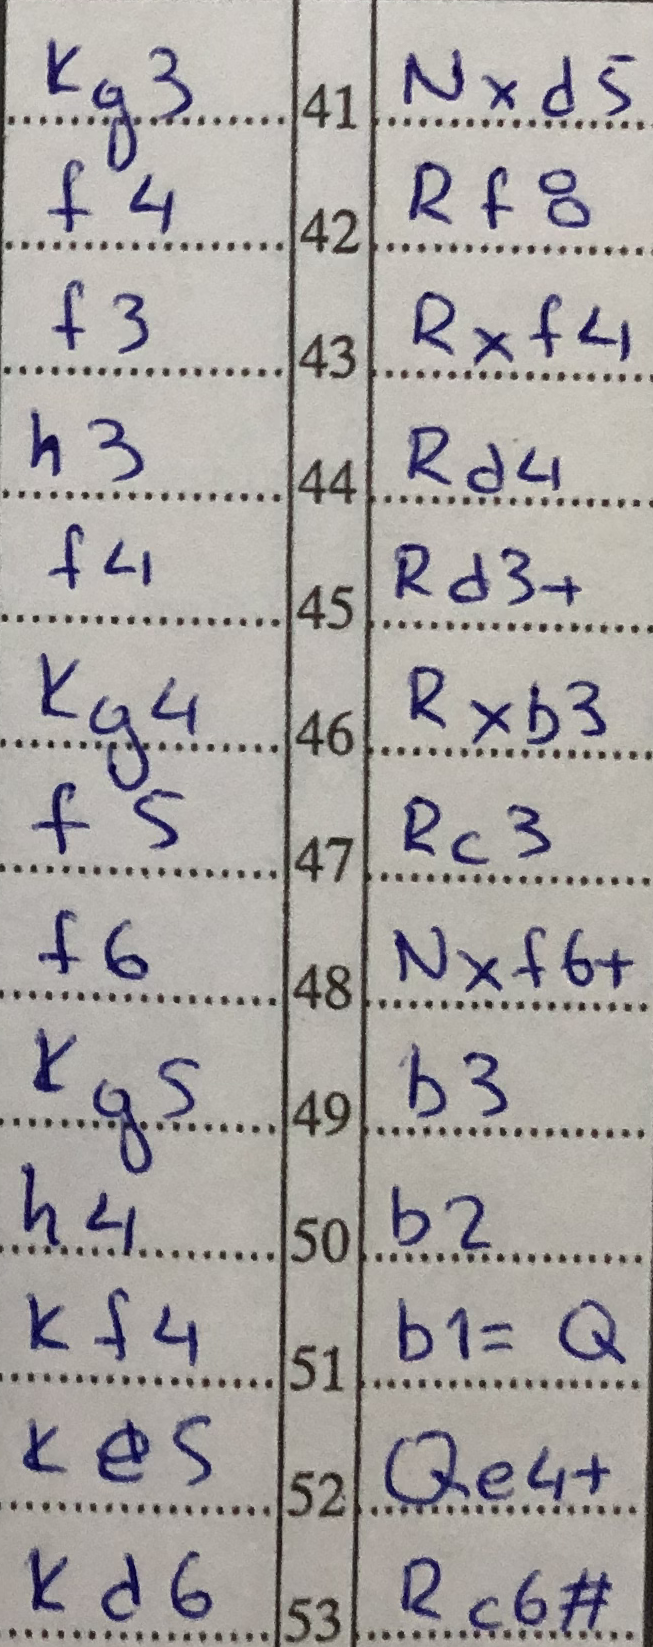 Kg3 41 Nxd5
f4 42 Rf8
f3 43 Rxf4
h3 44 Rd4
f4 45 Rd3+
Kg4 46 Rxb3
f5 47 Rc3
f6 48 Nxf6+
Kg5 49 b3
h4 50 b2
Kf4 51 b1=Q
Ke5 52 Qe4+
Kd6 53 Rc6#